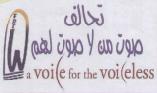 تحالف
صوت من لا صوت لهم
a voice for the voiceless